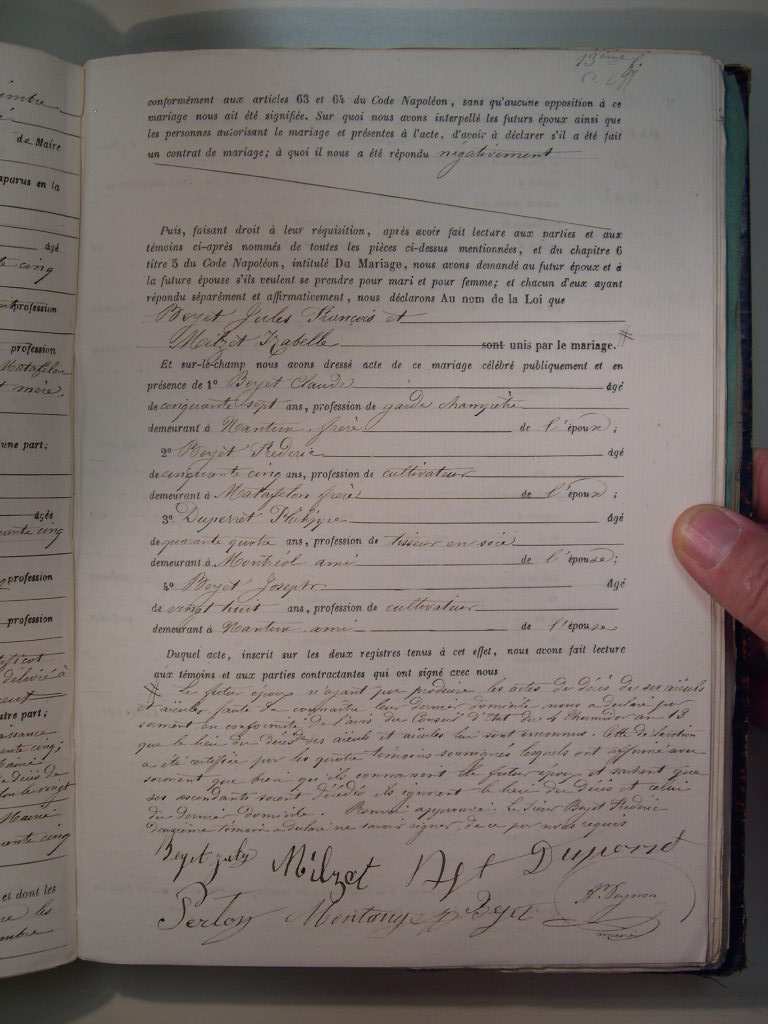 imbre
de Maire
aparus en la
âgé
te cinq
profession
profession
Matafelon
t mère.
une part;
âgés
ante cinq
profession
profession
délivré à
utre part;
issance
ente cinq;
décès de
Mairie
ante cinq
et dont les
re les
imbre
13ème f.
conformément aux articles 63 et 64 du Code Napoléon, sans qu'aucune opposition à ce
mariage nous ait été signifiée. Sur quoi nous avons interpellé les futurs époux ainsi que
les personnes autorisant le mariage et présentes à l'acte, d'avoir à déclarer s'il a été fait
un contrat de mariage; à quoi il nous a été répondu négativement
Puis, faisant droit à leur réquisition, après avoir fait lecture aux parties et aux
témoins ci-après nommés de toutes les pièces ci-dessus mentionnées, et du chapitre 6
titre 5 du Code Napoléon, intitulé Du Mariage, nous avons demandé au futur époux et à
la future épouse s'ils veulent se prendre pour mari et pour femme; et chacun d'eux ayant
répondu séparément et affirmativement, nous déclarons Au nom de la Loi que
Beyet Jules François et
Melzet Izabelle sont unis par le mariage. #
Et sur-le-champ nous avons dressé acte de ce mariage célébré publiquement et en
présence de 1° Beyet Claude âgé
de cinquante sept ans, profession de garde champêtre
demeurant à Nantua frère de l'époux;
2° Beyet Frédéric âgé
de cinquante cinq ans, profession de cultivateur
demeurant à Matafelon frère de l'époux;
3° Duperret Philippe âgé
de quarante quatre ans, profession de tisseur en soie
demeurant à Montréal ami de l'épouse;
4° Beyet Joseph âgé
de vingt huit ans, profession de cultivateur
demeurant à Nantua ami de l'épouse
Duquel acte, inscrit sur les deux registres tenus à cet effet, nous avons fait lecture
aux témoins et aux parties contractantes qui ont signé avec nous
# Le futur époux n'ayant pu produire les actes de décès de ses aïeuls
et aïeules faute de connaître leur dernier domicile nous a déclaré par
serment en conformité de l'avis du Conseil d'Etat du 4 Thermidor an 13
que le lieu du décès des aïeuls et aïeules lui sont inconnus. Cette déclaration
a été certifiée par les quatre témoins soussignés lesquels ont affirmé avec
serment que bien qu'ils connaissent le futur époux et sachant que
ses ascendants soient décédés ils ignorent le lieu du décès et celui
du dernier domicile. Renvoi approuvé. Le Sieur Beyet Frédéric
deuxième témoin a déclaré ne savoir signer, de ce par nous requis
Beyet july Melzet Duperret
Montange Beyet
maire